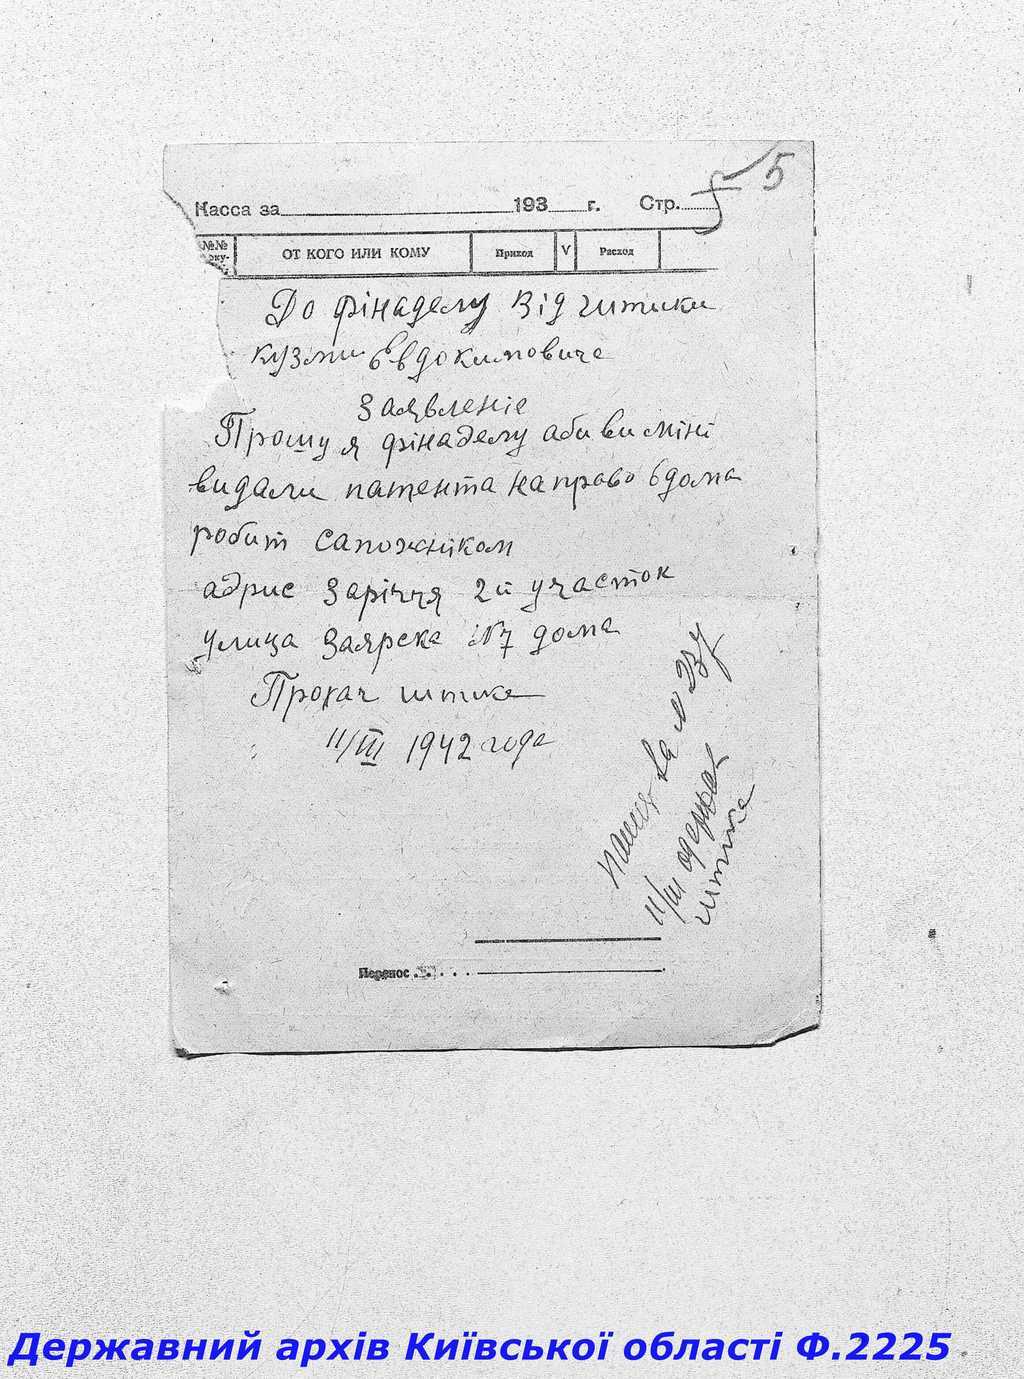 5
Касса за 193 г. Стр.
№№
ОТ КОГО ИЛИ КОМУ Приход V Расход
До фінаделу Від читики
кузми Євдокимовича
Заявленіє
Прошу я фінаделу аби ви міні
видали патента на право вдома
робит сапожніком
адрис Заріччя 2й участок
улица Заярска №7 дома
Прохач
11/III 1942 года
11/III одержав
Перенос
Державний архів Київської області Ф.2225